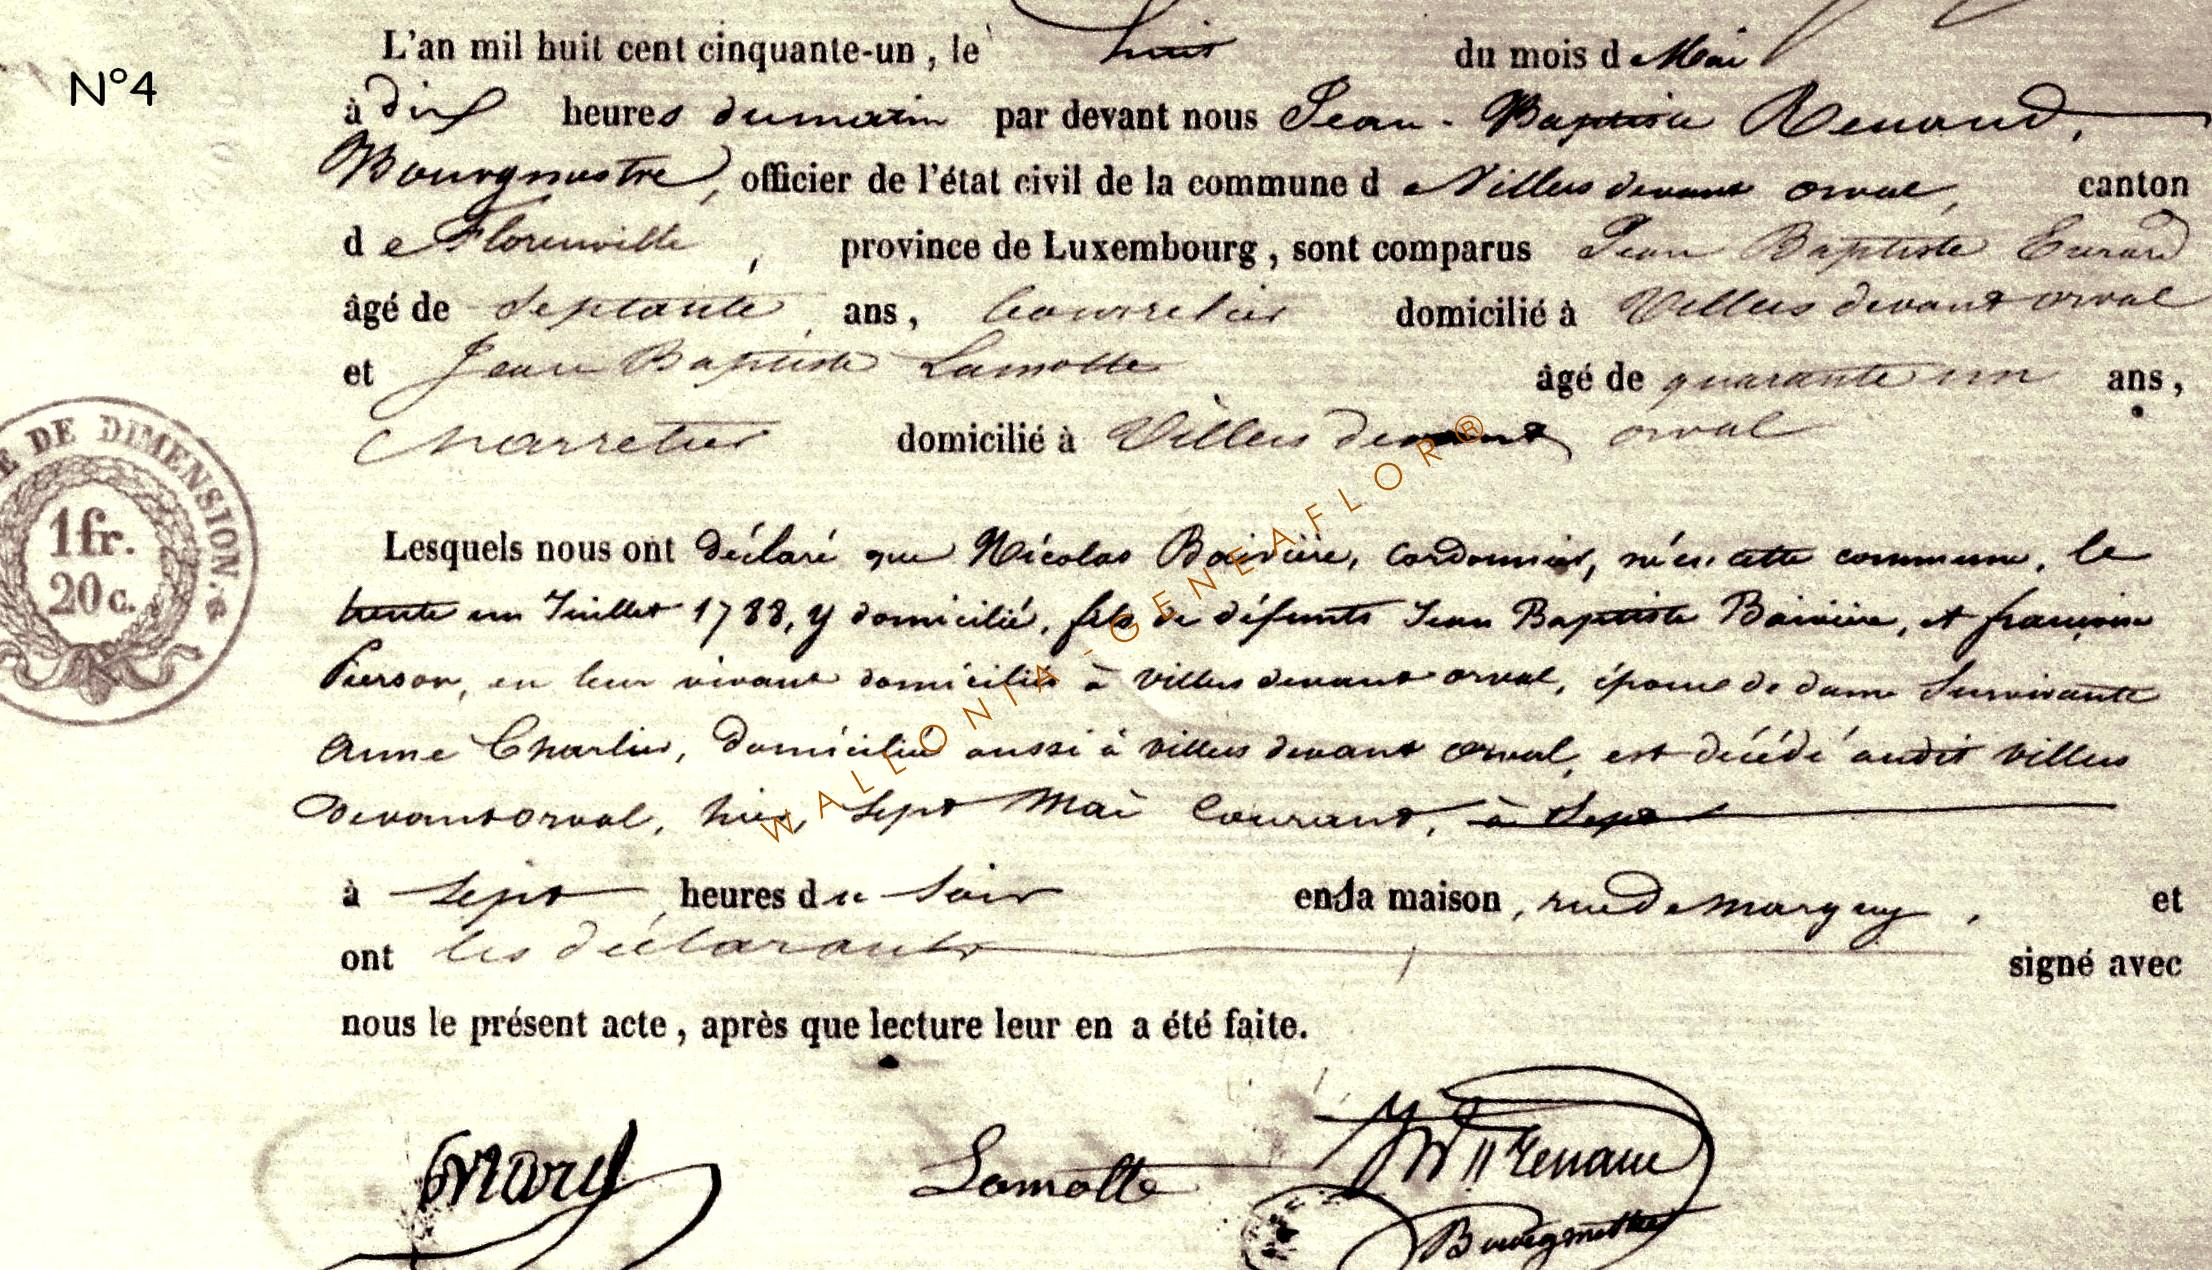 L'an mil huit cent cinquante-un, le huit du mois de Mai
N°4
à dix heures du matin par devant nous Jean-Baptiste Renaud,
Bourgmestre, officier de l'état civil de la commune de Villers devant orval, canton
de Florenville, province de Luxembourg, sont comparus Jean Baptiste Evrard
âgé de septante ans, bourrelier domicilié à Villers devant orval
et Jean Baptiste Lamotte âgé de quarante un ans,
charretier domicilié à Villers devant orval
DE DIMENSION.
1fr.
20c.
Lesquels nous ont déclaré que Nicolas Boivière, cordonnier, né en cette commune, le
trente un Juillet 1788, y domicilié, fils de défunts Jean Baptiste Boivière, et françoise
Pierson, en leur vivant domiciliés à villers devant orval, époux de dame Survivante
Anne Charlier, domiciliée aussi à villers devant orval, est décédé audit villers
devant orval, hier, sept Mai Courant, à sept
à sept heures du soir en sa maison, rue de margny, et
ont les déclarants signé avec
nous le présent acte, après que lecture leur en a été faite.
Evrard Lamotte Renaud
Bourgmestre
WALLONIA-GENEAFLOR®